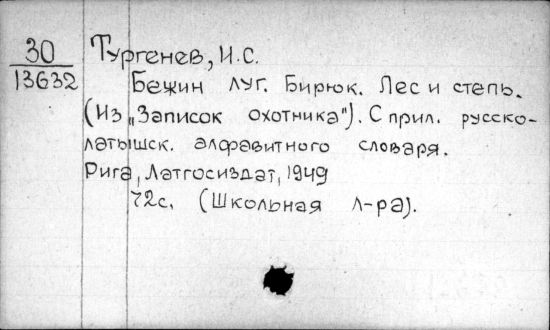 30
13632
Тургенев, И.С.
Бежин луг. Бирюк. Лес и степь.
(Из „Записок охотника"). С прил. русско-
латышск. алфавитного словаря.
Рига, Латгосиздат, 1949
72с. (Школьная л-ра).